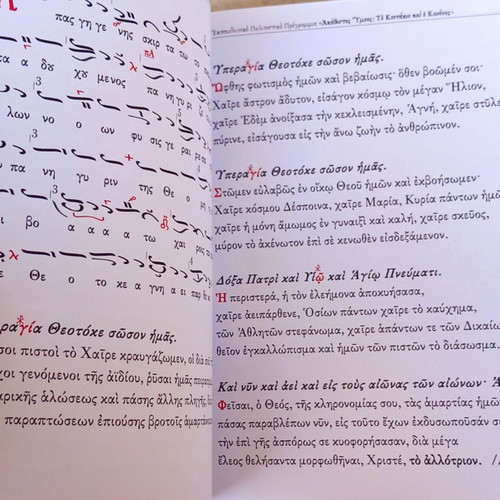 πας γη γε νης σκιρ τα τω το
τα α δου χου μενος πα νη γυ ρι
λων νο ο ων φυ σις γε ραι ρου
πα νη γυ ριν της Θε ο μη
βο α α α α τω χαι ρος πα
Θε ο το κε α γνη α ει παρ θε
σοι πιστοὶ τὸ Χαῖρε κραυγάζωμεν, οἱ διὰ
γενόμενοι τῆς ἀϊδίου, ῥῦσαι ἡμᾶς πειρασμοῦ
ἁλώσεως καὶ πάσης ἄλλης πληγῆς,
παραπτώσεων ἐπιούσης βροτοῖς ἁμαρτάνουσιν
Ἐκπαιδευτικὸ Πολιτιστικὸ Πρόγραμμα «Ἀκάθιστος Ὕμνος: Τὸ Κοντάκιο καὶ ὁ Κανόνας»
Ὑπεραγία Θεοτόκε σῶσον ἡμᾶς.
Ὤφθης φωτισμὸς ἡμῶν καὶ βεβαίωσις· ὅθεν βοῶμέν σοι·
Χαῖρε ἄστρον ἄδυτον, εἰσάγον κόσμῳ τὸν μέγαν Ἥλιον,
χαῖρε Ἐδὲμ ἀνοίξασα τὴν κεκλεισμένην, Ἁγνή, χαῖρε στῦλε
πύρινε, εἰσάγουσα εἰς τὴν ἄνω ζωὴν τὸ ἀνθρώπινον.
Ὑπεραγία Θεοτόκε σῶσον ἡμᾶς.
Στῶμεν εὐλαβῶς ἐν οἴκῳ Θεοῦ ἡμῶν καὶ ἐκβοήσωμεν·
Χαῖρε κόσμου Δέσποινα, χαῖρε Μαρία, Κυρία πάντων ἡμῶν
χαῖρε ἡ μόνη ἄμωμος ἐν γυναιξὶ καὶ καλή, χαῖρε σκεῦος,
μύρον τὸ ἀκένωτον ἐπὶ σὲ κενωθὲν εἰσδεξάμενον.
Δόξα Πατρὶ καὶ Υἱῷ καὶ Ἁγίῳ Πνεύματι.
Ἡ περιστερά, ἡ τὸν ἐλεήμονα ἀποκυήσασα,
χαῖρε ἀειπάρθενε, Ὁσίων πάντων χαῖρε τὸ καύχημα,
τῶν Ἀθλητῶν στεφάνωμα, χαῖρε ἁπάντων τε τῶν Δικαίων
θεῖον ἐγκαλλώπισμα καὶ ἡμῶν τῶν πιστῶν τὸ διάσωσμα.
Καὶ νῦν καὶ ἀεὶ καὶ εἰς τοὺς αἰῶνας τῶν αἰώνων·
Φεῖσαι, ὁ Θεός, τῆς κληρονομίας σου, τὰς ἁμαρτίας ἡμῶν
πάσας παραβλέπων νῦν, εἰς τοῦτο ἔχων ἐκδυσωποῦσάν σε
τὴν ἐπὶ γῆς ἀσπόρως σε κυοφορήσασαν, διὰ μέγα
ἔλεος θελήσαντα μορφωθῆναι, Χριστέ, τὸ ἀλλότριον.